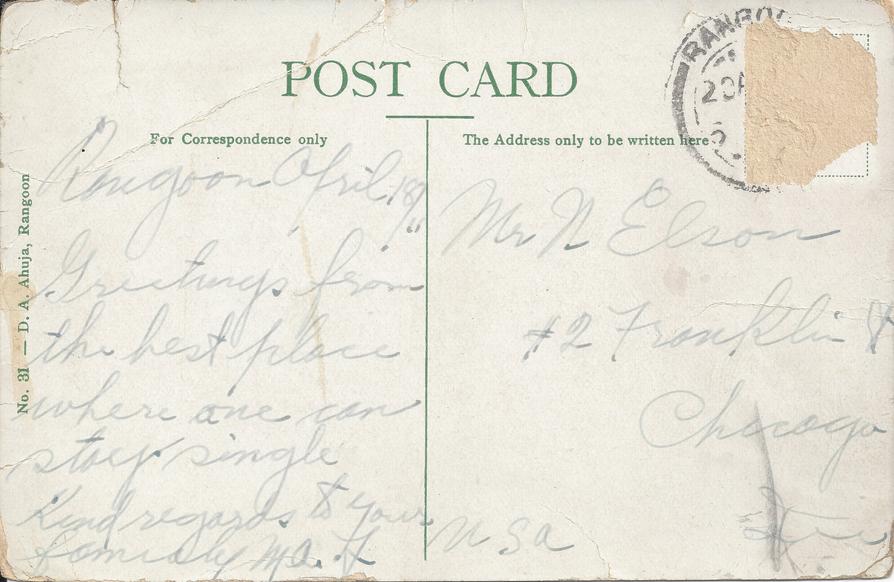 POST CARD
For Correspondence only
The Address only to be written here
No. 31 — D. A. Ahuja, Rangoon
RANGO
Rangoon April 18
Greetings from
the best place
where one can
stay single
Kind regards to your
family
Mr N Elson
#2 Franklin
Chicago
USA